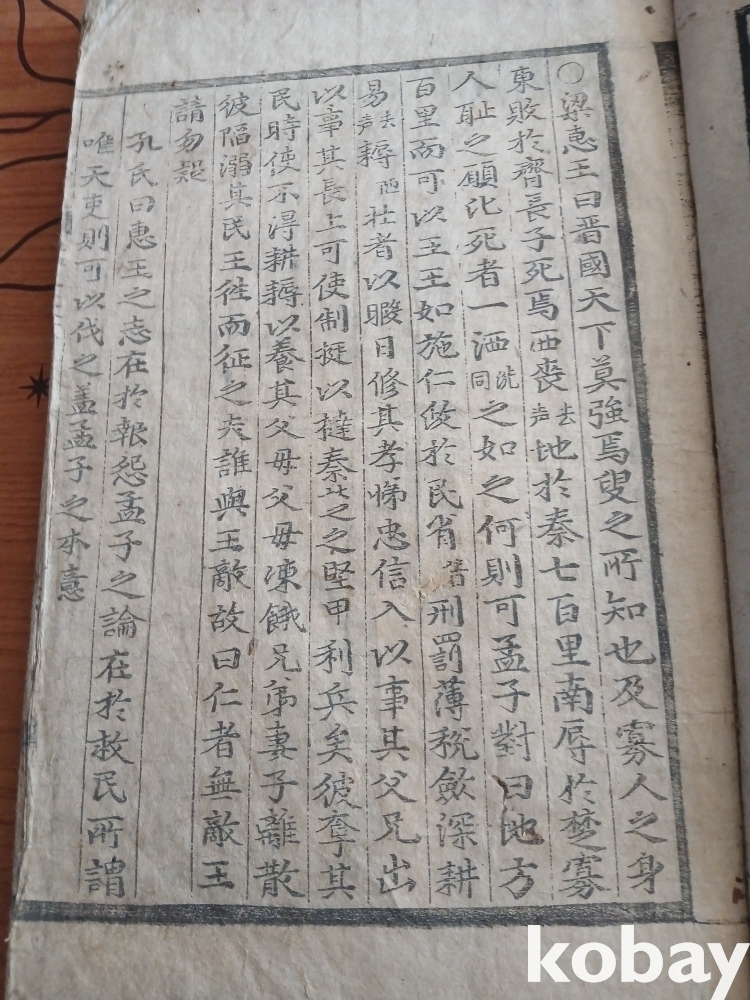 ○梁惠王曰晋國天下莫強焉叟之所知也及寡人之身
東敗於齊長子死焉西喪去声地於秦七百里南辱於楚寡
人耻之願比死者一洒洗同之如之何則可孟子對曰地方
百里而可以王王如施仁政於民省刑罰薄税斂深耕
易去声耨壮者以暇日修其孝悌忠信入以事其父兄出
以事其長上可使制挺以撻秦楚之堅甲利兵矣彼奪其
民時使不得耕耨以養其父母父母凍餓兄弟妻子離散
彼陷溺其民王徃而征之夫誰與王敵故曰仁者無敵王
請勿疑
孔氏曰惠王之志在於報怨孟子之論在於救民所謂
唯天吏則可以伐之盖孟子之本意
kobay